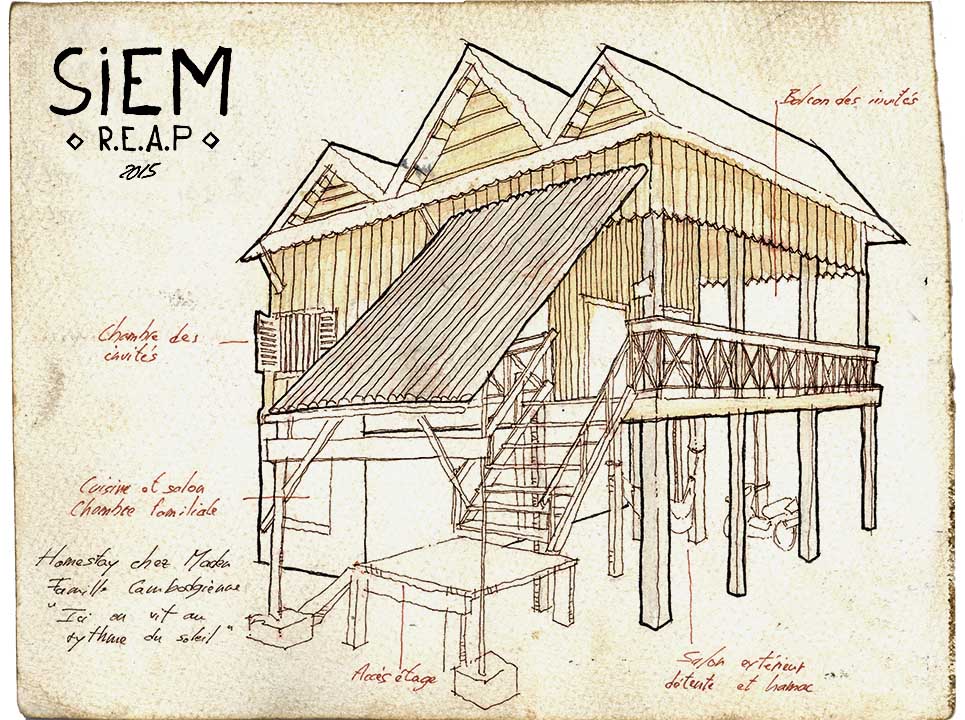 SiEM
R.E.A.P
2015
Balcon des invités
Chambre des
invités
Cuisine et salon
Chambre familiale
Homestay chez Maden
Famille Cambodgienne
"Ici on vit au
rythme du soleil"
Accès étage
Salon extérieur
détente et hamac